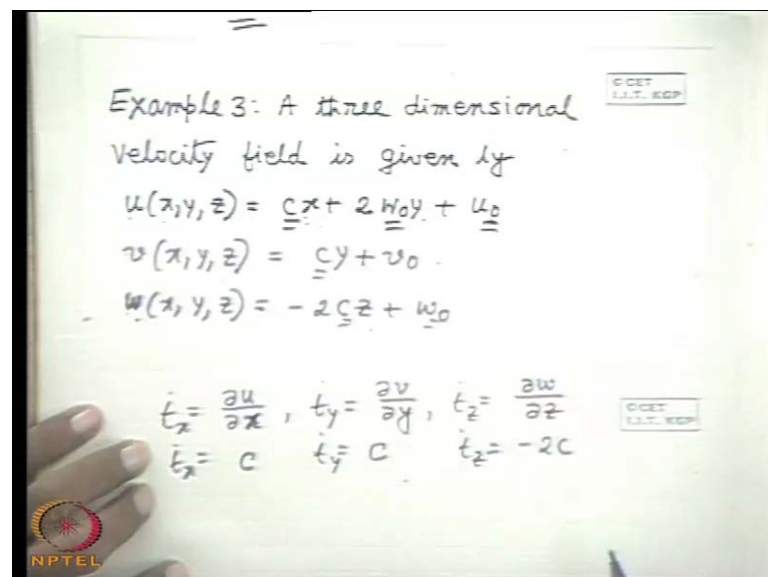 C CET
I.I.T. KGP
Example 3: A three dimensional
velocity field is given by
u(x,y,z) = cx + 2w₀y + u₀
v(x,y,z) = cy + v₀.
w(x,y,z) = -2cz + w₀
ṫₓ = ∂u/∂x, ṫᵧ = ∂v/∂y, ṫ_z = ∂w/∂z
C CET
I.I.T. KGP
ṫₓ = C ṫᵧ = C ṫ_z = -2C
NPTEL